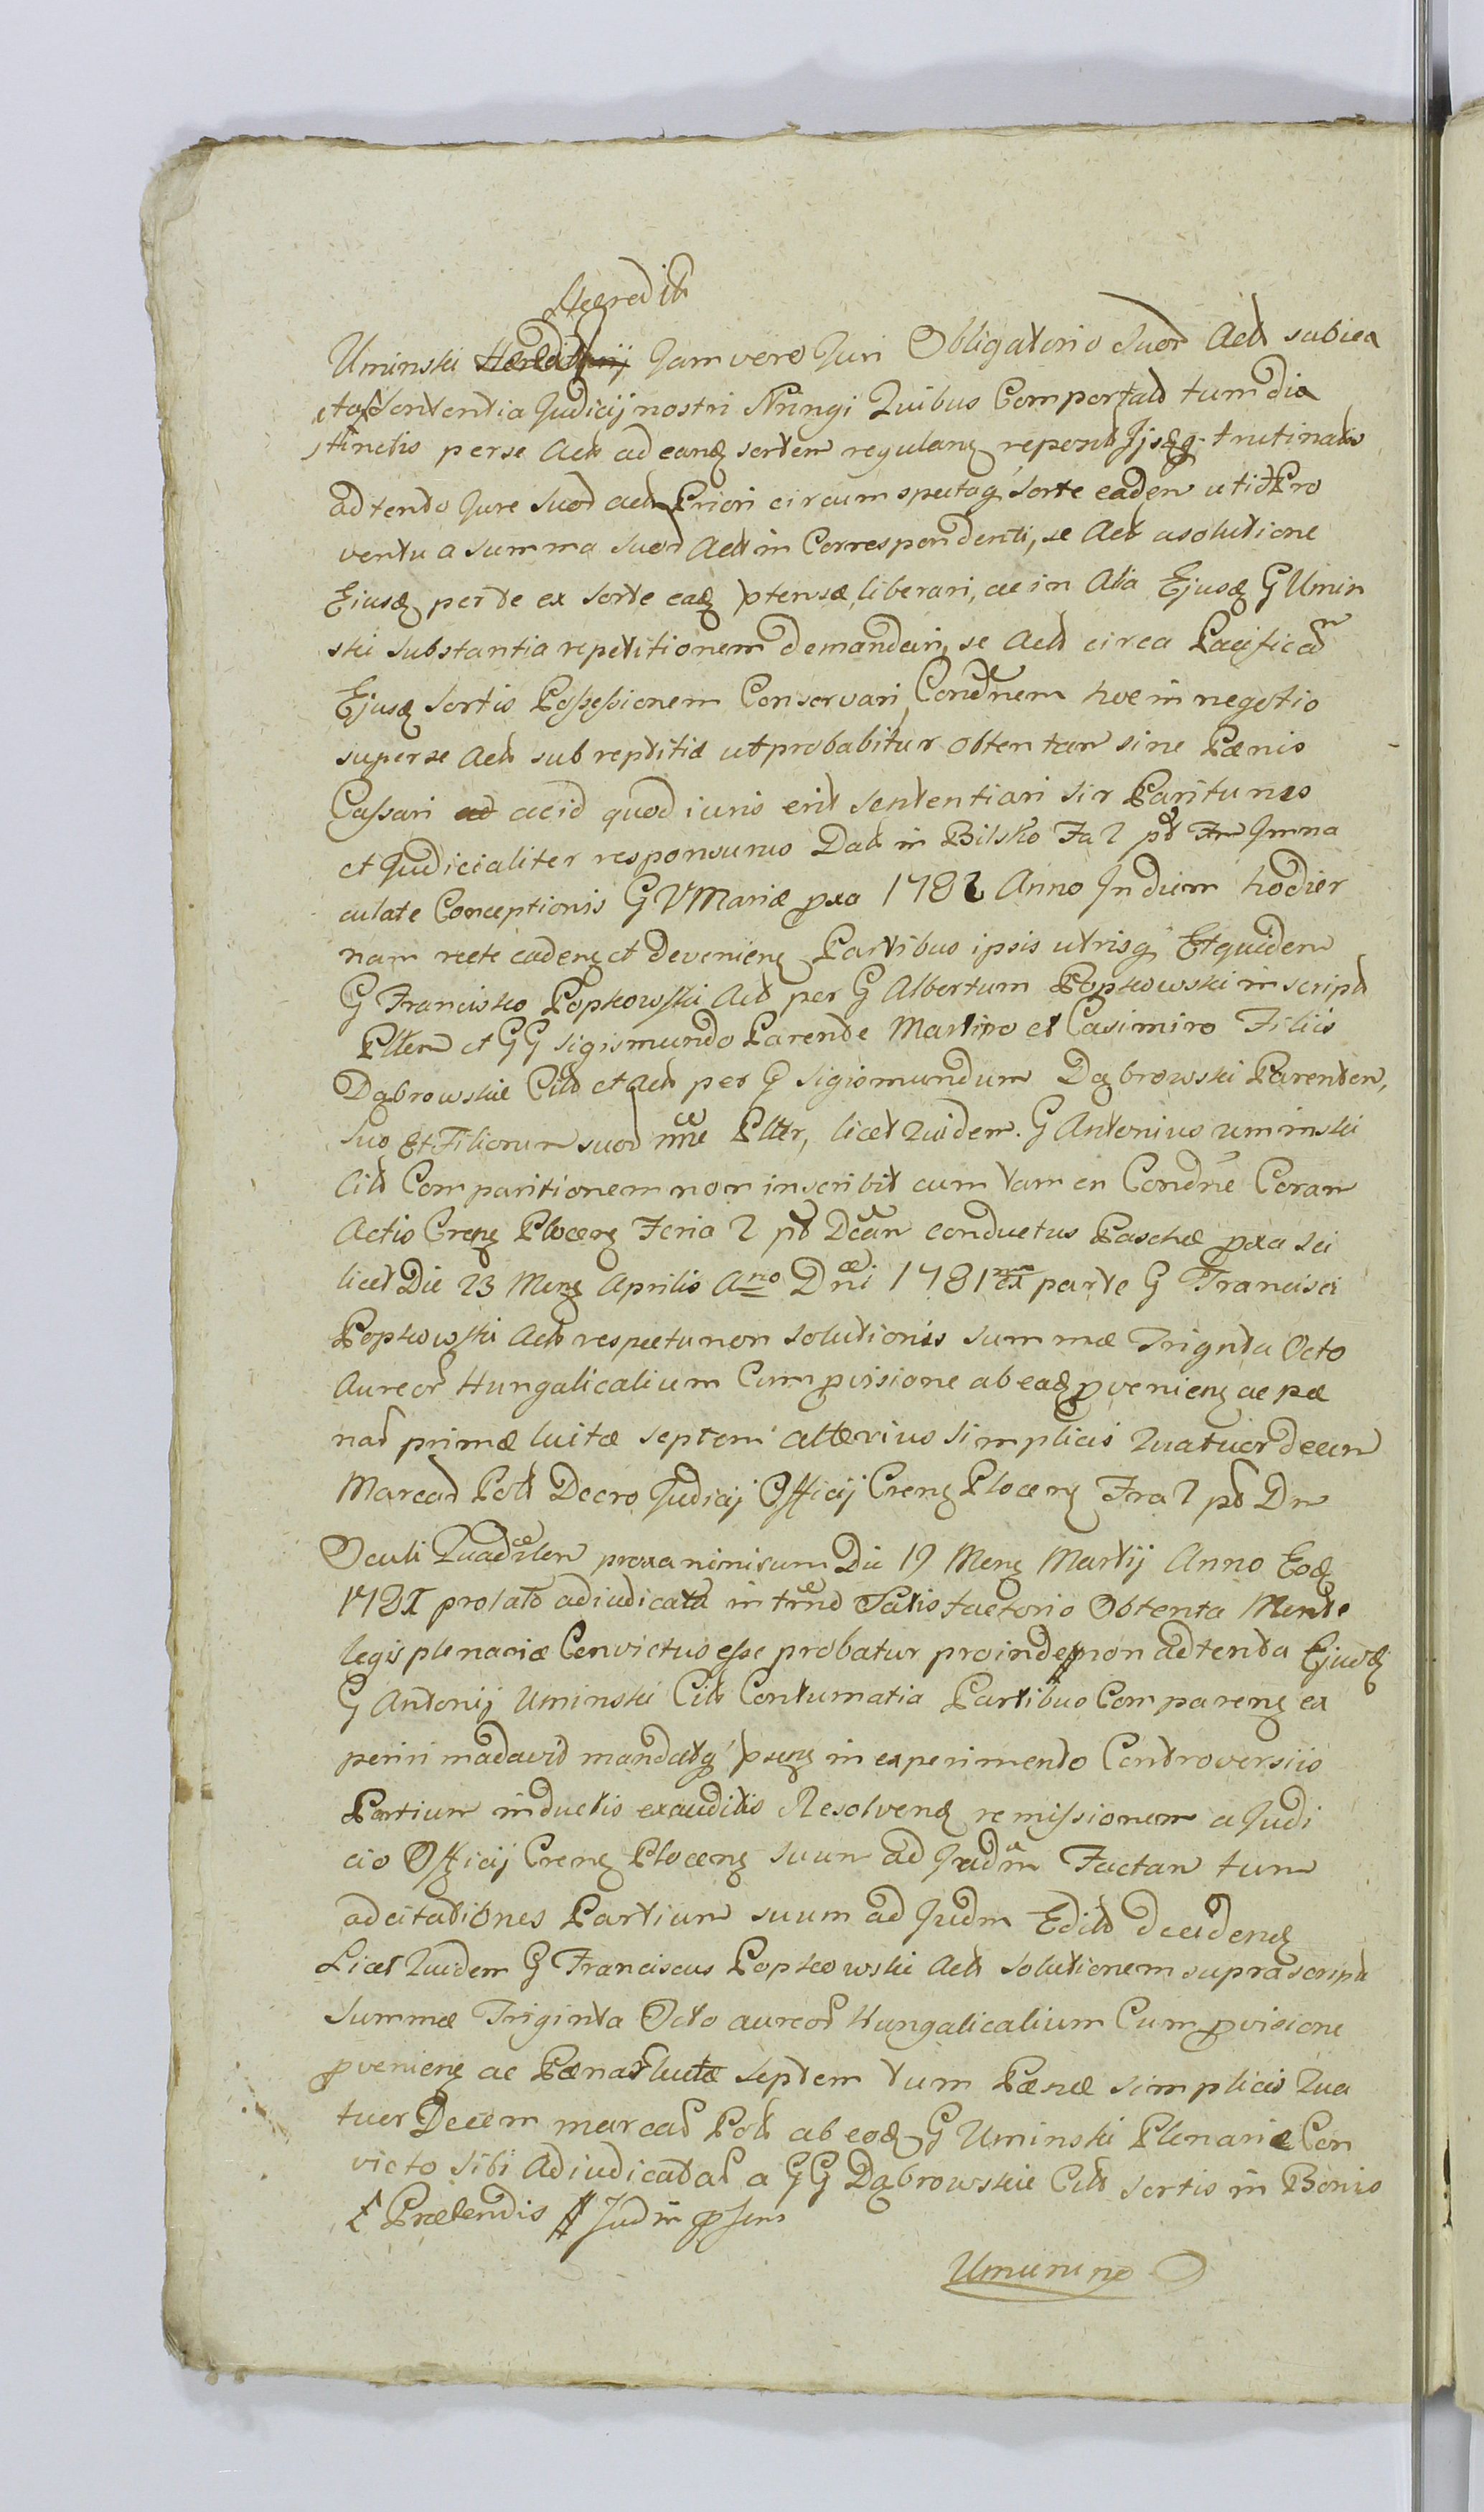 Hæredit
Uminski Hæreditarij Jam vero Juri Obligatorio Suor Act subiec
tas Sententia Judicij nostri Stringi Quibus Comportat tum dis
stinctis per se Act ad eang sortem regulang reponi Ijsqg trutinatis
adtento Jure Suor act Priori circumspectaq Sorte eadem uti Pro
ventu a Summa Suor Act in Correspondenti, se Act a solutione
Eiusq per te ex Sorte eaq ptensæ, liberari, ac in Alia Ejusq G Umin
ski Substantia repetitionem demandari, se Act circa Pacificam
Ejusq Sortis Possessionem Conservari, Condnem hoc in negotio
super se Act subreptitiæ ut probabitur obtentam sine Pænis
Cassari ad ac id quod iuris erit sententiari sis Pariturus
et Judicialiter responsurus Dat in Bilsko Fa 2 pt Fr Imma
culatæ Conceptionis G V Mariæ pxa 1782 Anno In diem hodier
nam recte cadeng et deveniens Partibus ipsis utrisq Et quidem
G Francisko Popkowski Act per G Albertum Popkowski inscript
Plter et GG Sigismundo Parente Martino et Casimiro Filiis
Dąbrowskie Citt et Act per G Sigismundum Dąbrowski Parentem,
Suo Et Filiorum suor nne Plter, licet Quidem G Antonius Uminski
Citt Comparitionem non inscribit cum tamen Condne Coram
Actis Creng Plocens Feria 2 pt Dcam conductus Paschæ pxa sci
licet Die 23 Mens Aprilis Ano Dni 1781 ex parte G Francisci
Popkowski Act respectu non Solutionis Summæ Trignta Octo
Aureor Hungalicalium Cum pvisione ab eaq pveniens ac pæ
nar primæ luitæ septem alterius Simplicis Quatuordecem
Marcar Polt Decro Judicij Officij Creng Plocens Fra 2 pt Dm
Oculi Quadrlem proxa nimirum Die 19 Mens Martij Anno Eoq
1781 prolato adiudicata in trno Satisfactorio Obtenta Mente
legis plenariæ Convictus esse probatur proinde non adtenta Ejusq
G Antonij Uminski Citt Contumatia Partibus Compareng ex
periri madavit mandatq pseng in experimento Controversiis
Partium inductis exauditis Resolvendo remissionem a Judi
cio Officij Creng Plocens Suum ad Judm Factam tum
ad citationes Partium suum ad Judm Edito decidendo
Licet Quidem G Franciscus Popkowski Act Solutionem suprascript
Summæ Triginta Octo aureor Hungalicalium Cum pvisione
pveniens ac Pænar luitæ Septem tum Pænæ Simplicis Qua
tuor Decem marcar Polt ab eoq G Uminski Plenariæ Con
victo Sibi Adiudicatar a GG Dąbrowskie Citt Sortis in Bonis
Prætendis Judm psens
Uminino